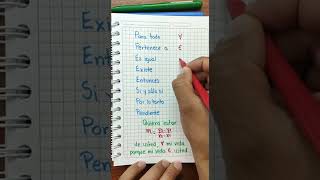 Para todo ∀
Pertenece a ∈
Es igual
Existe
Entonces
Si y sólo si
Por lo tanto
Pendiente
Quiero estar
m = y₂-y₁
x₂-x₁
de usted ∀ mi vida
porque mi vida ∈ usted